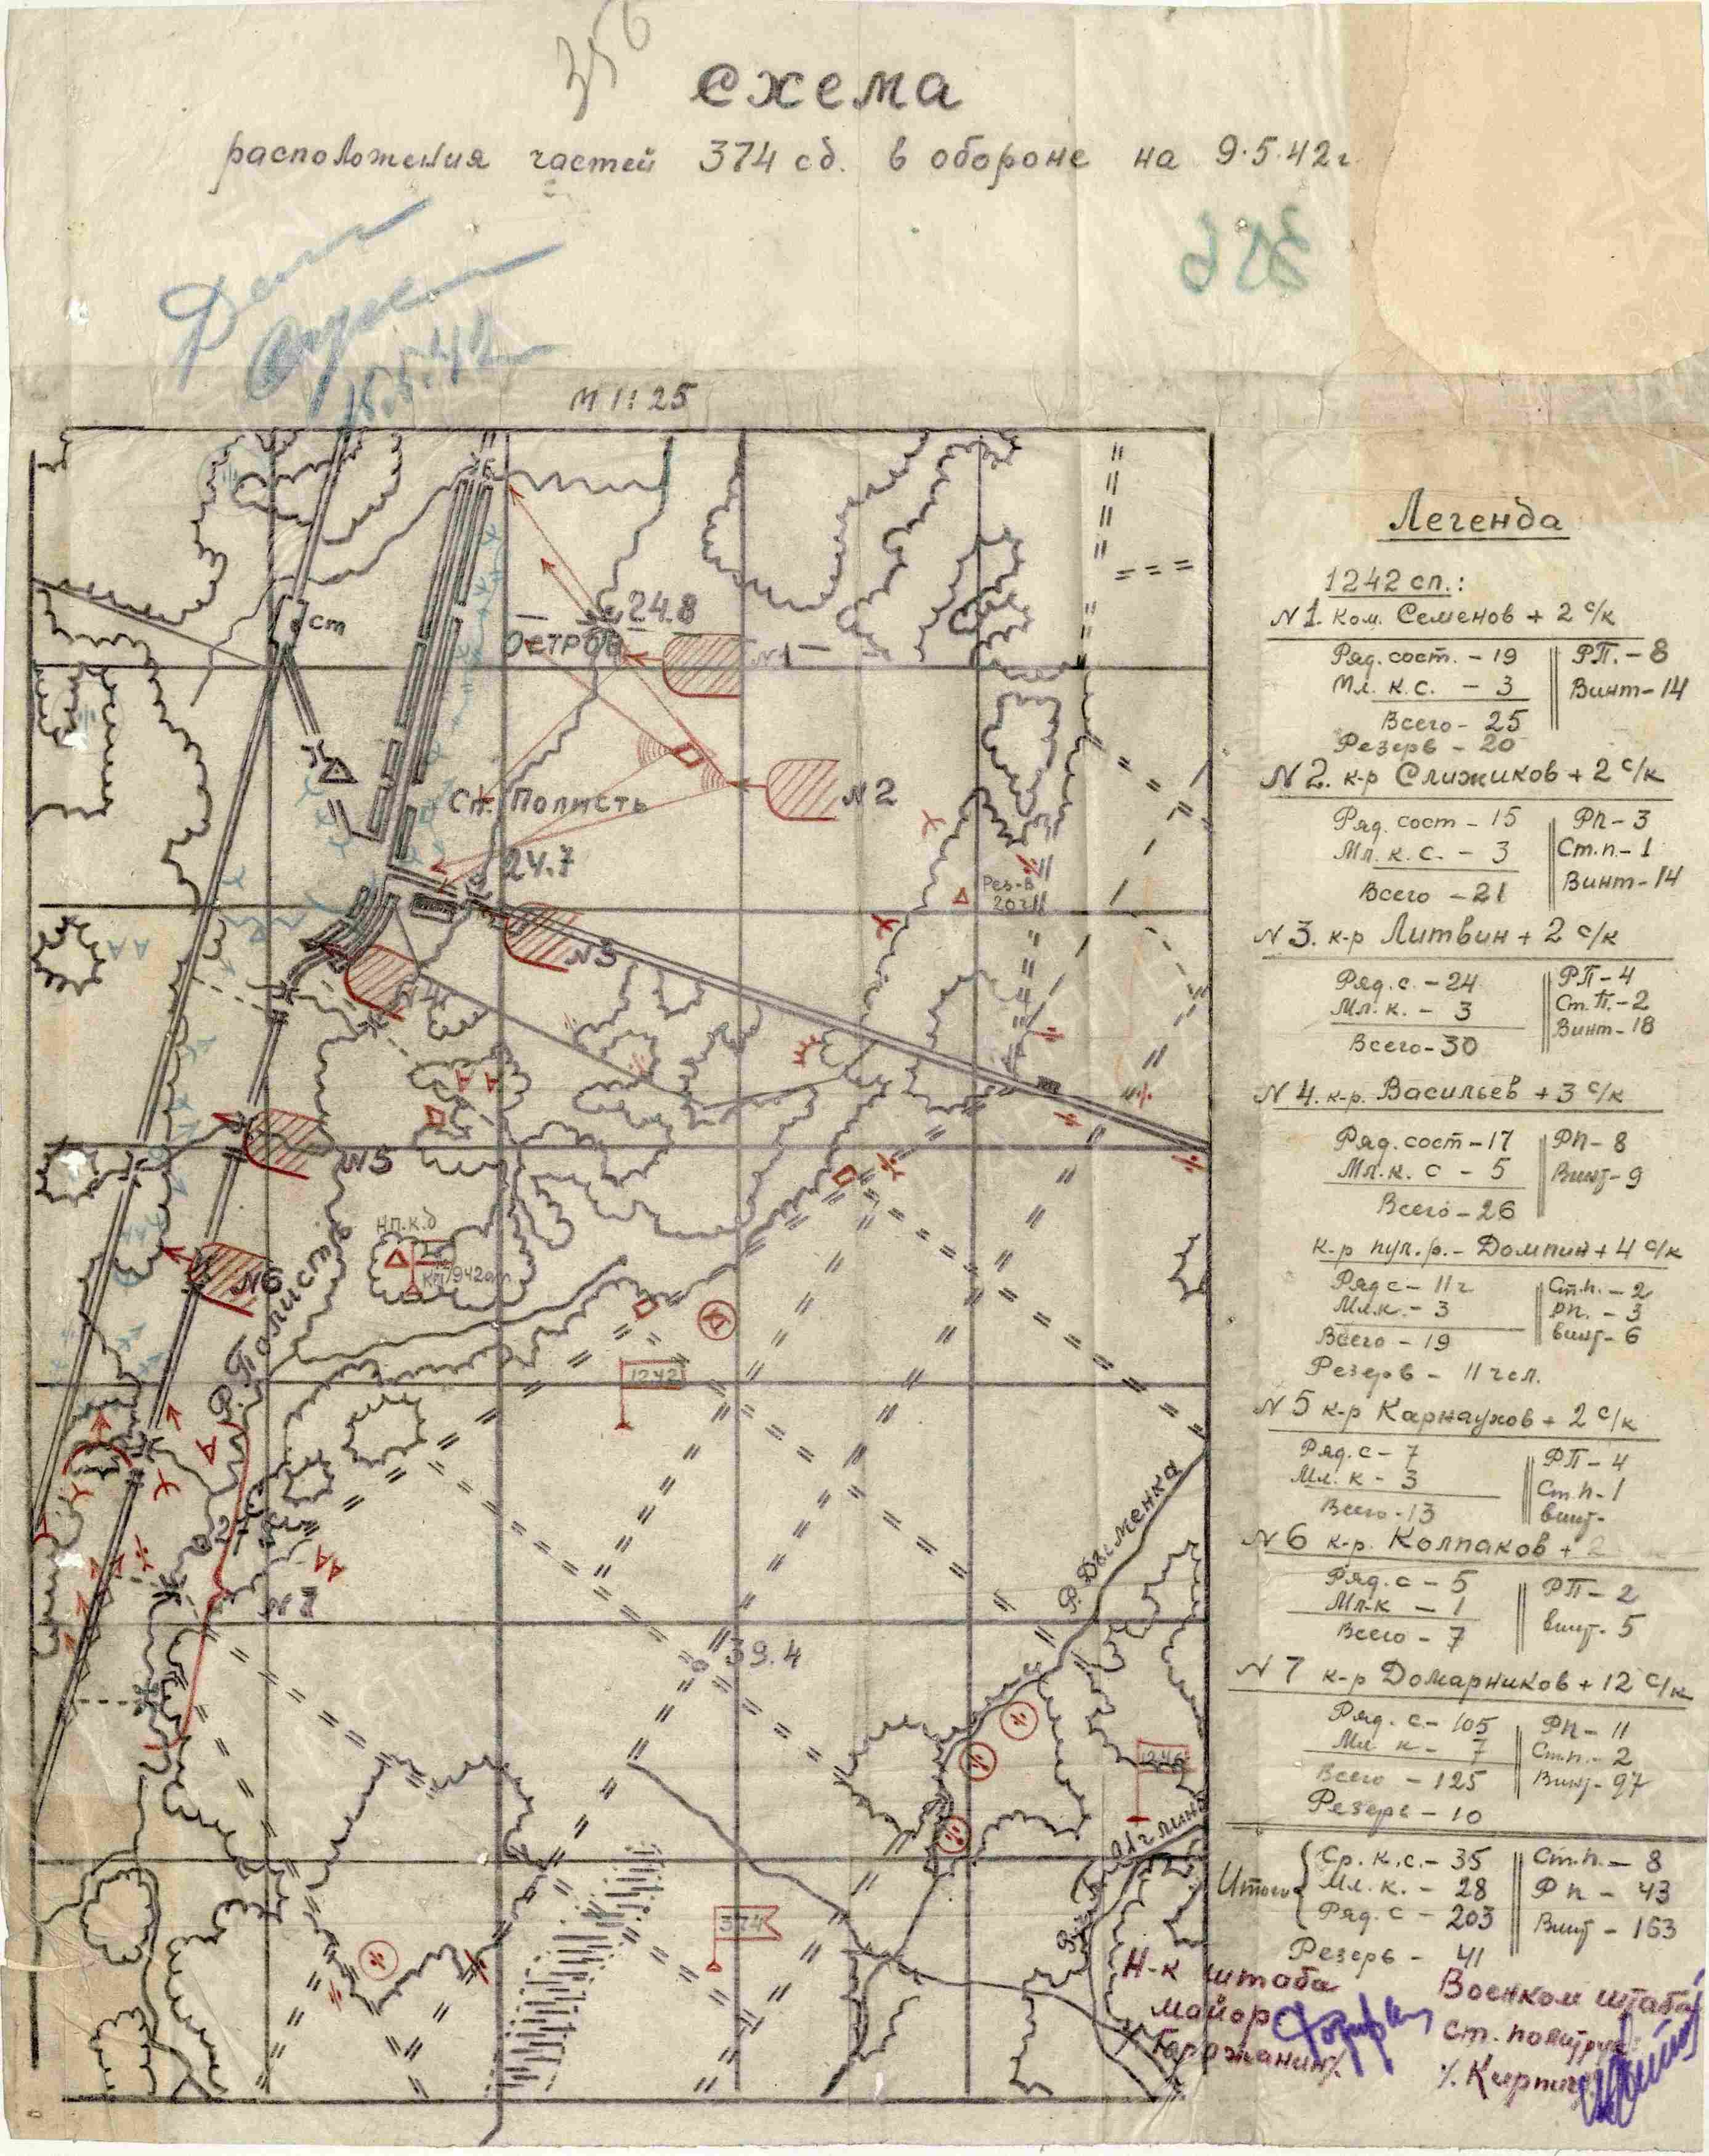 схема
расположения частей 374 сд. в обороне на 9.5.42г.
356
15.5.42
М 1:25
ст
24.8
Остров
N1
Сп. Полисть
N2
24.7
Рез-в
20 ч
N3
N4
N5
нп.к.д
N6
р. Полисть
1242
N7
р. Дыменка
39.4
1246
374
Легенда
1242 сп.:
N1. ком. Семенов + 2 с/к
Ряд. сост. - 19 РП. - 8
Мл. к.с. - 3 Винт - 14
Всего - 25
Резерв - 20
N2. к-р Слижиков + 2 с/к
Ряд. сост - 15 РП - 3
Мл. к.с. - 3 Ст.п - 1
Всего - 21 Винт - 14
N3. к-р Литвин + 2 с/к
Ряд. с. - 24 РП - 4
Мл. к. - 3 Ст.П. - 2
Всего - 30 Винт - 18
N4. к-р. Васильев + 3 с/к
Ряд. сост - 17 РП - 8
Мл. к. с - 5 Винт - 9
Всего - 26
к-р пул. р. - Домпин + 4 с/к
Ряд с - 11 г Ст.п. - 2
Мл.к. - 3 рп. - 3
Всего - 19 винт - 6
Резерв - 11 чел.
N5 к-р Карнаухов + 2 с/к
Ряд. с - 7 РП - 4
Мл. к - 3 Ст.п - 1
Всего - 13 винт -
N6 к-р. Колпаков + 2
Ряд. с - 5 РП - 2
Мл. к - 1 винт - 5
Всего - 7
N7 к-р Домарников + 12 с/к
Ряд. с. - 105 РП - 11
Мл к - 7 Ст.п. - 2
Всего - 125 Винт - 97
Резерв - 10
Итого Ср. к.с. - 35 Ст.п. - 8
Мл. к. - 28 РП - 43
Ряд. с - 203 Винт - 163
Резерв - 41
Н-к штаба
майор
Военком штаба
ст. политрук